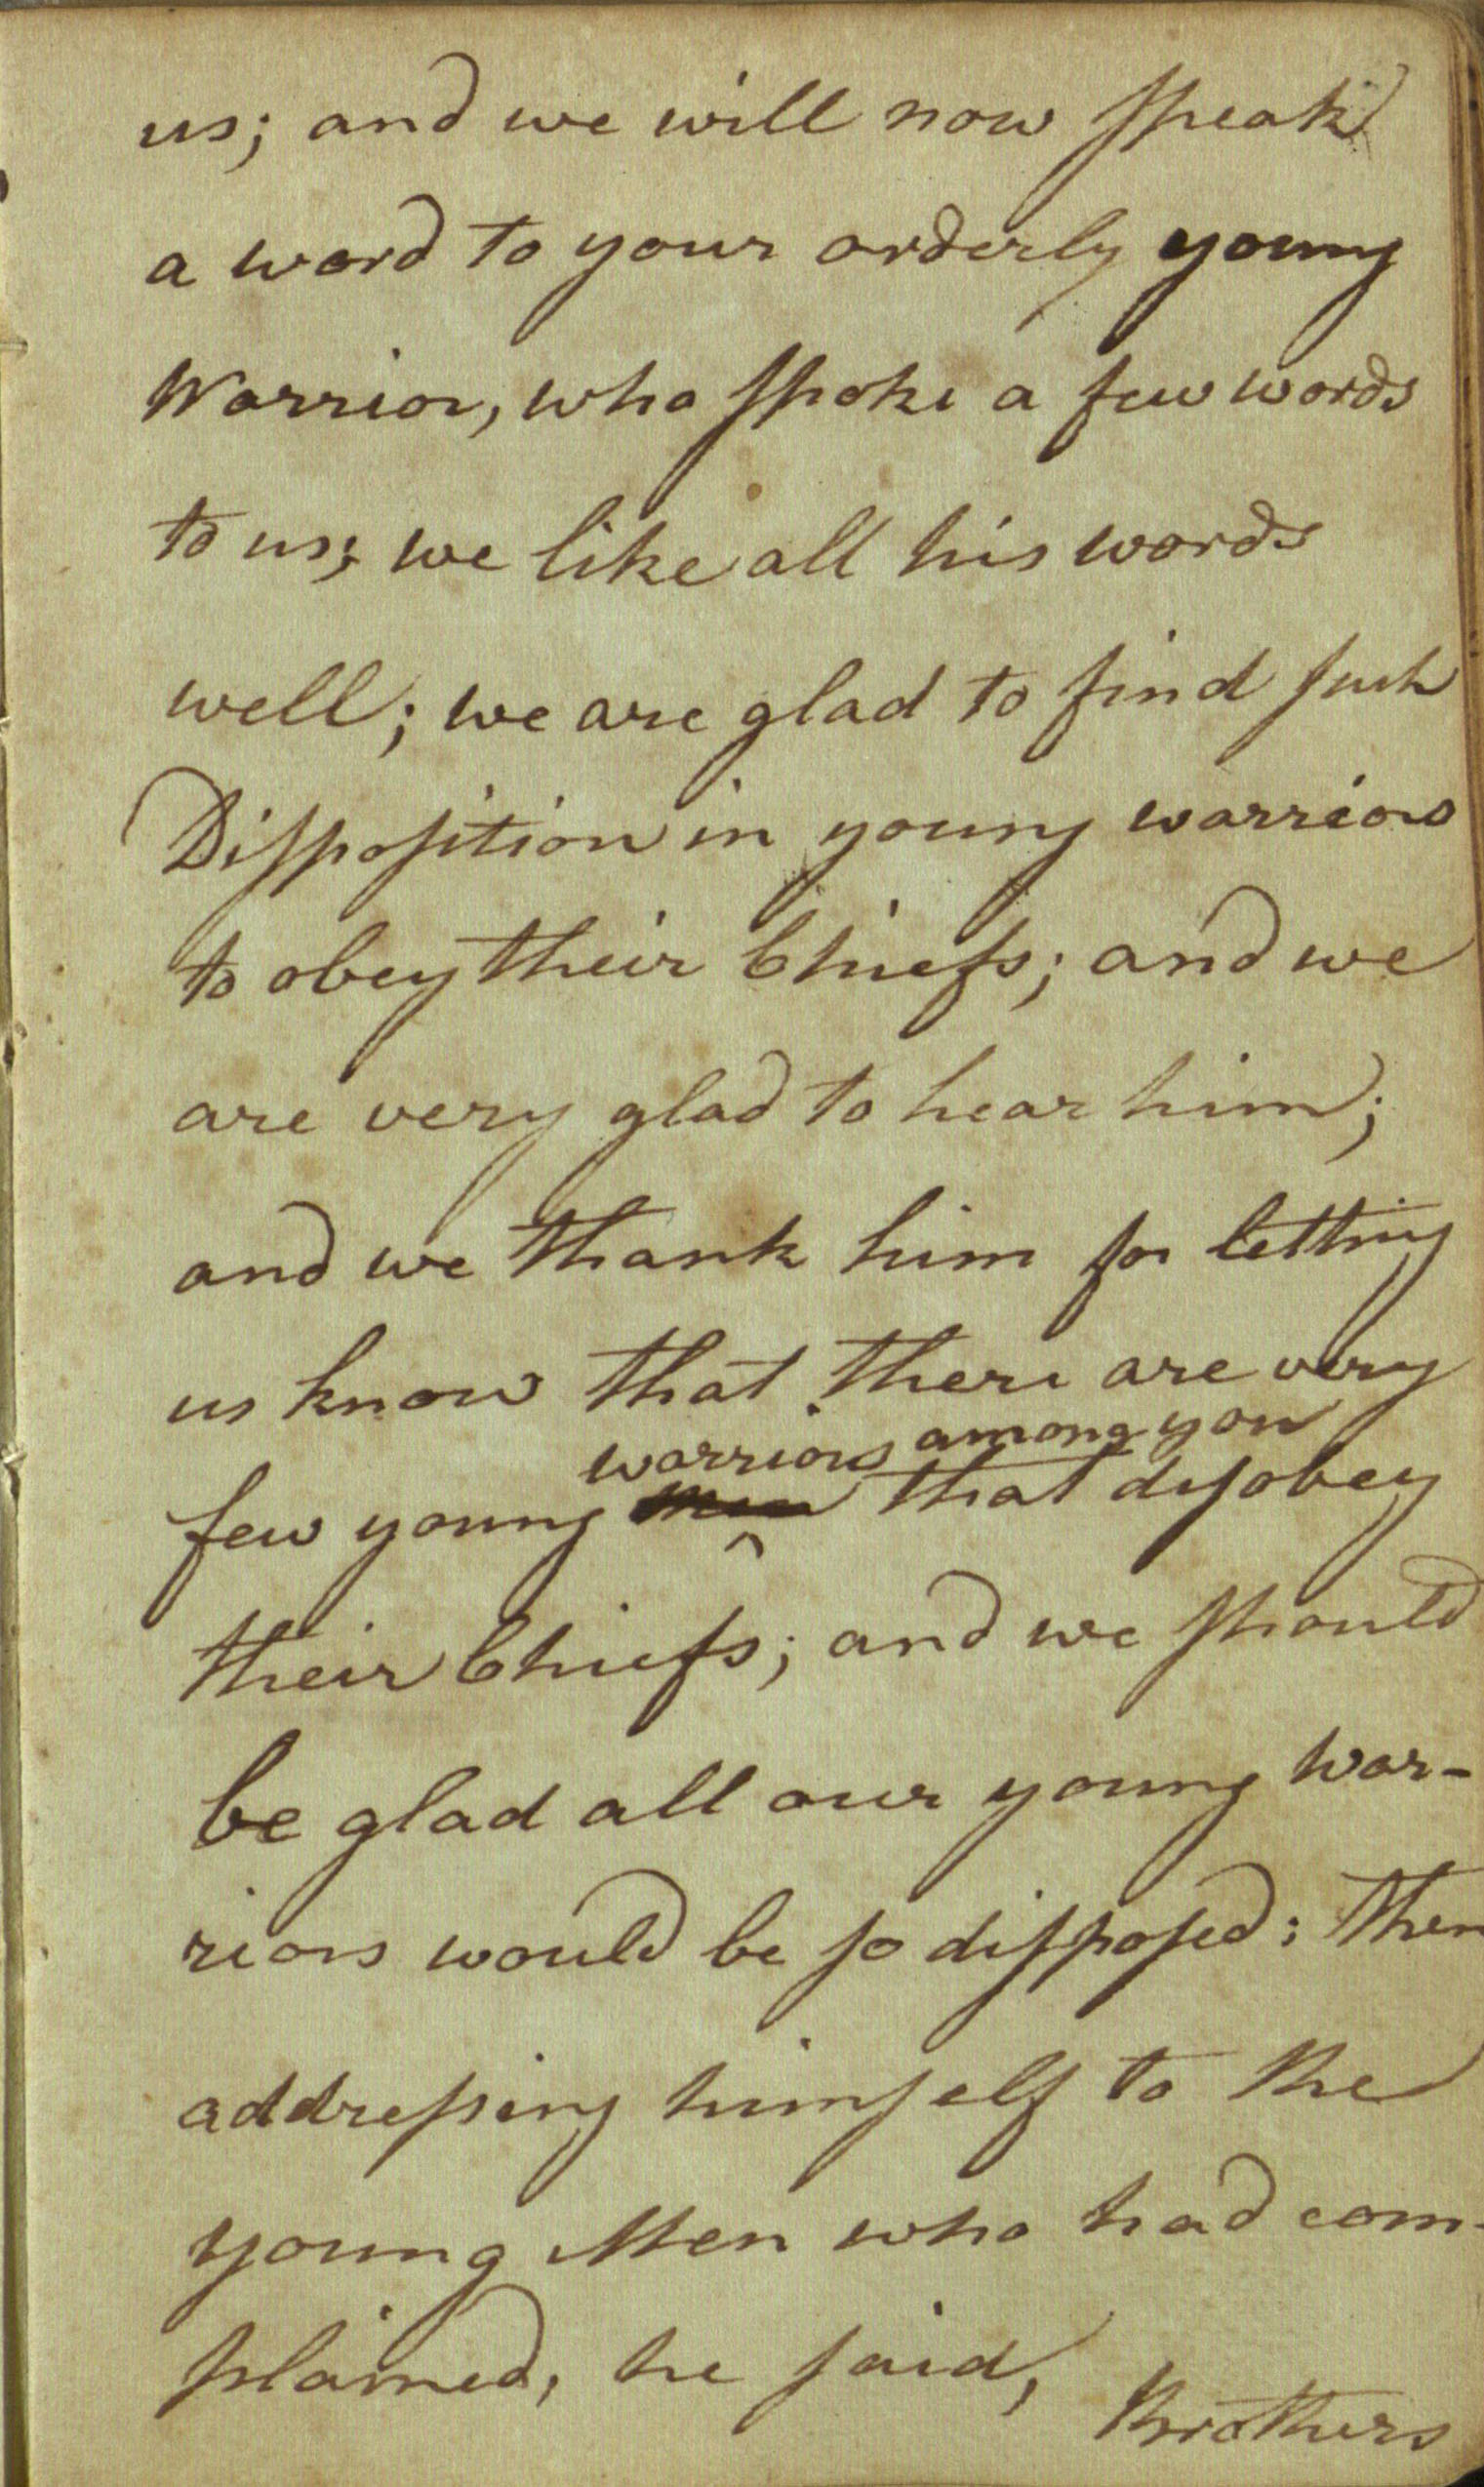 us; and we will now speak
a word to your orderly young
Warrior, who spoke a few words
to us; we like all his words
well; we are glad to find such
Disposition in young warriors
to obey their Chiefs; and we
are very glad to hear him;
and we thank him for letting
us know that there are very
warriors among you
few young men that disobey
their Chiefs; and we should
be glad all our young war-
riors would be so disposed: then
addressing himself to the
young Men who had com-
plained, he said,
Brothers